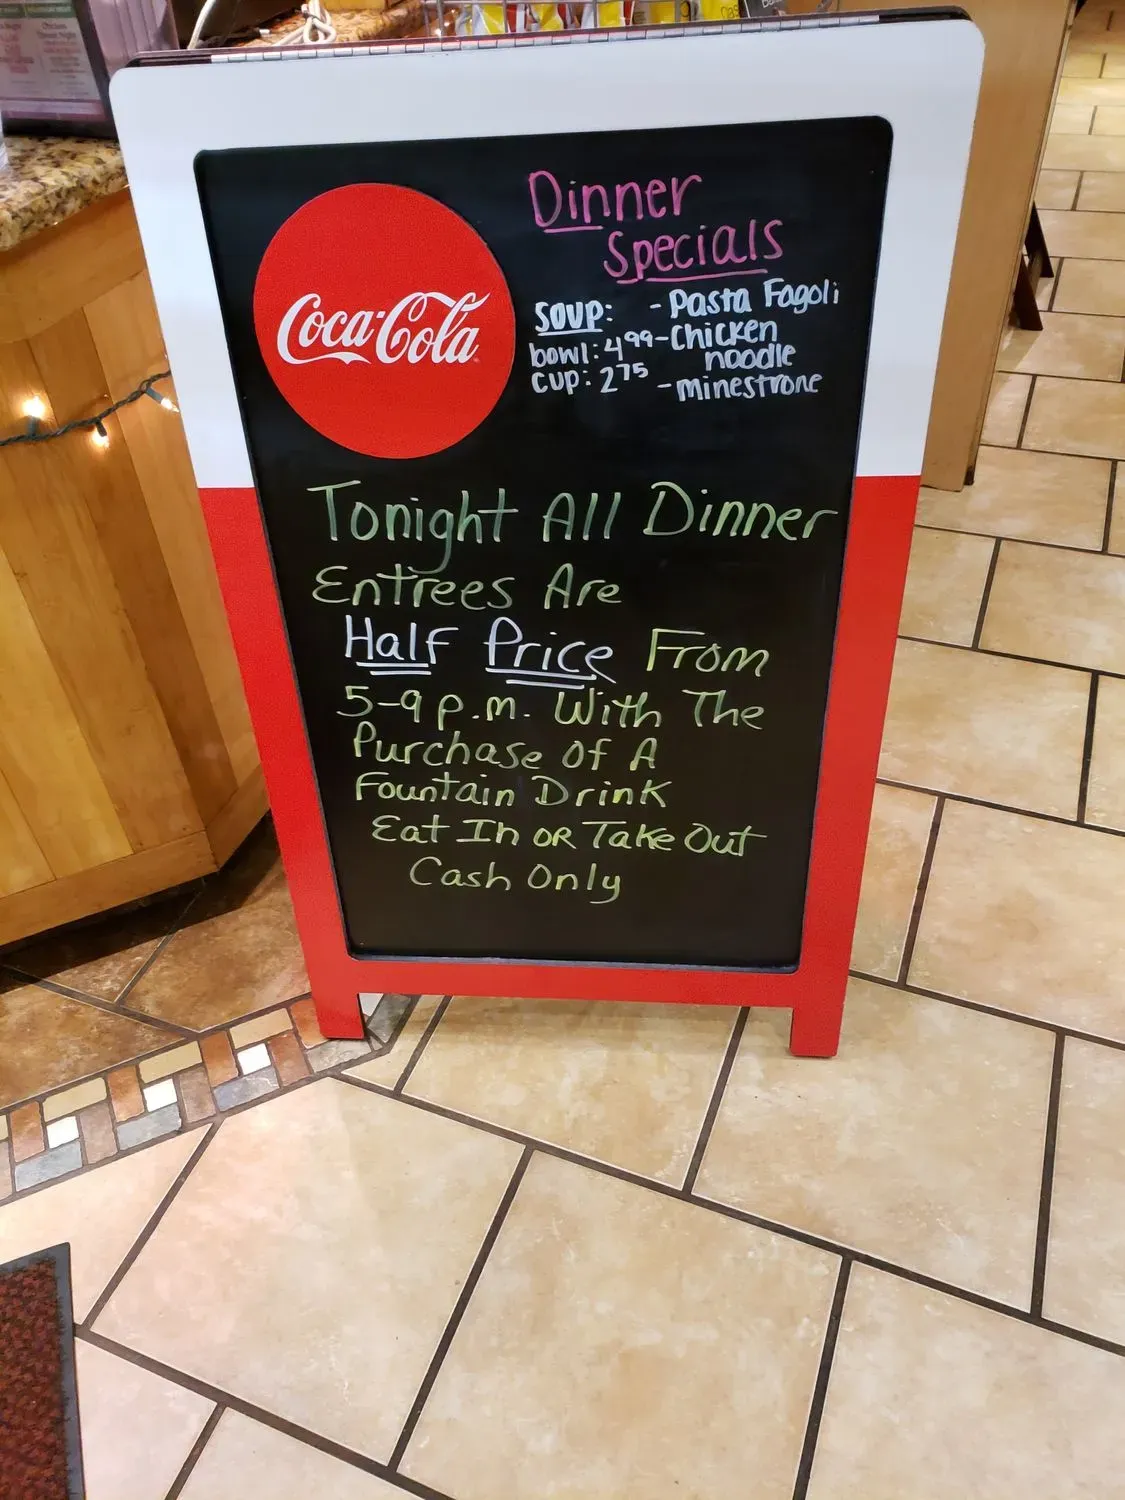 Coca-Cola
Dinner
Specials
SOUP: - Pasta Fagoli
bowl: 4.99 - Chicken
noodle
cup: 2.75 - minestrone
Tonight All Dinner
Entrees Are
Half Price From
5-9 p.m. With The
Purchase Of A
Fountain Drink
Eat In OR Take Out
Cash Only